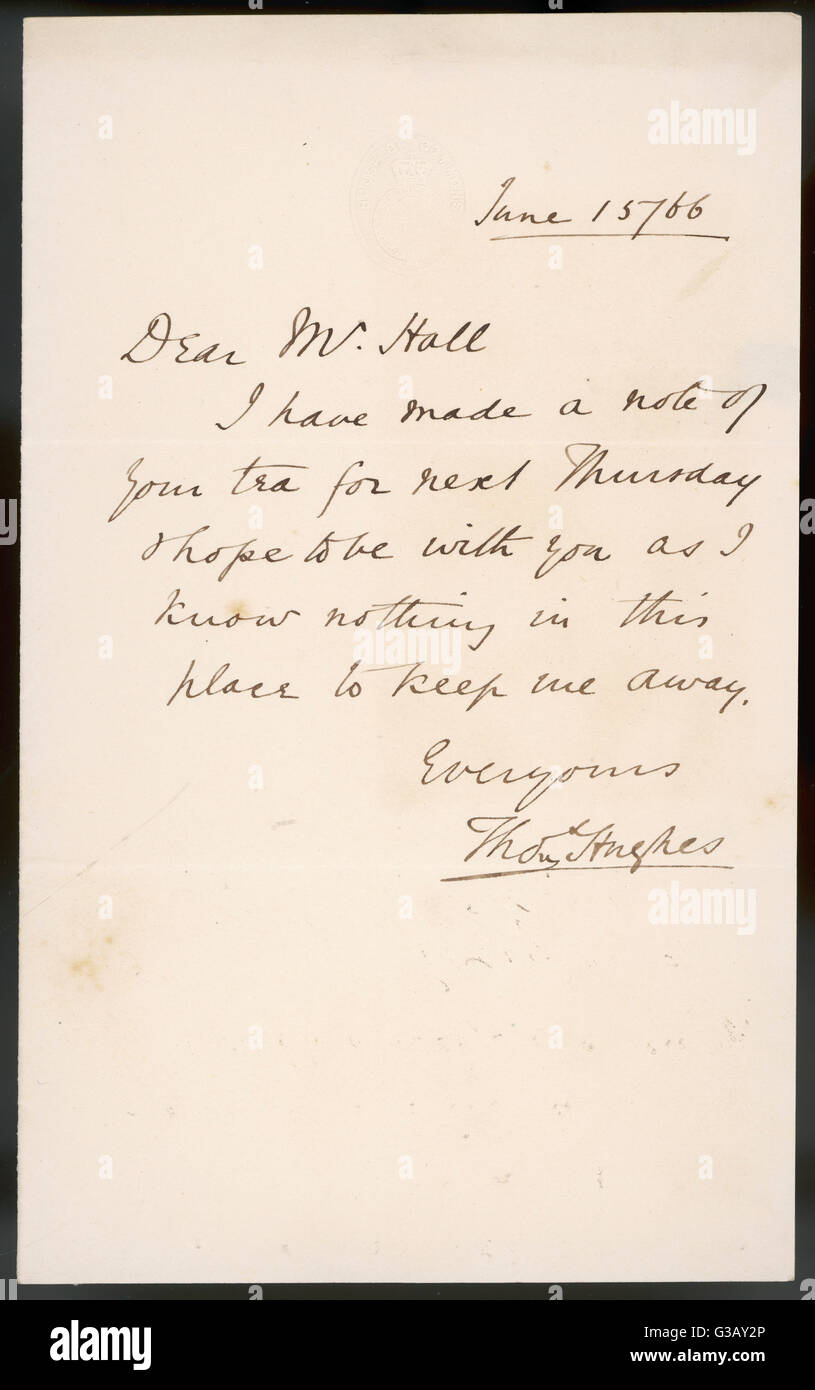 HOUSE OF COMMONS
June 15/66
Dear Mr. Hall
I have made a note of
your tea for next Thursday
& hope to be with you as I
know nothing in this
place to keep me away.
Ever yours
Thos Hughes
alamy
alamy
alamy
alamy
G3AY2P
www.alamy.com